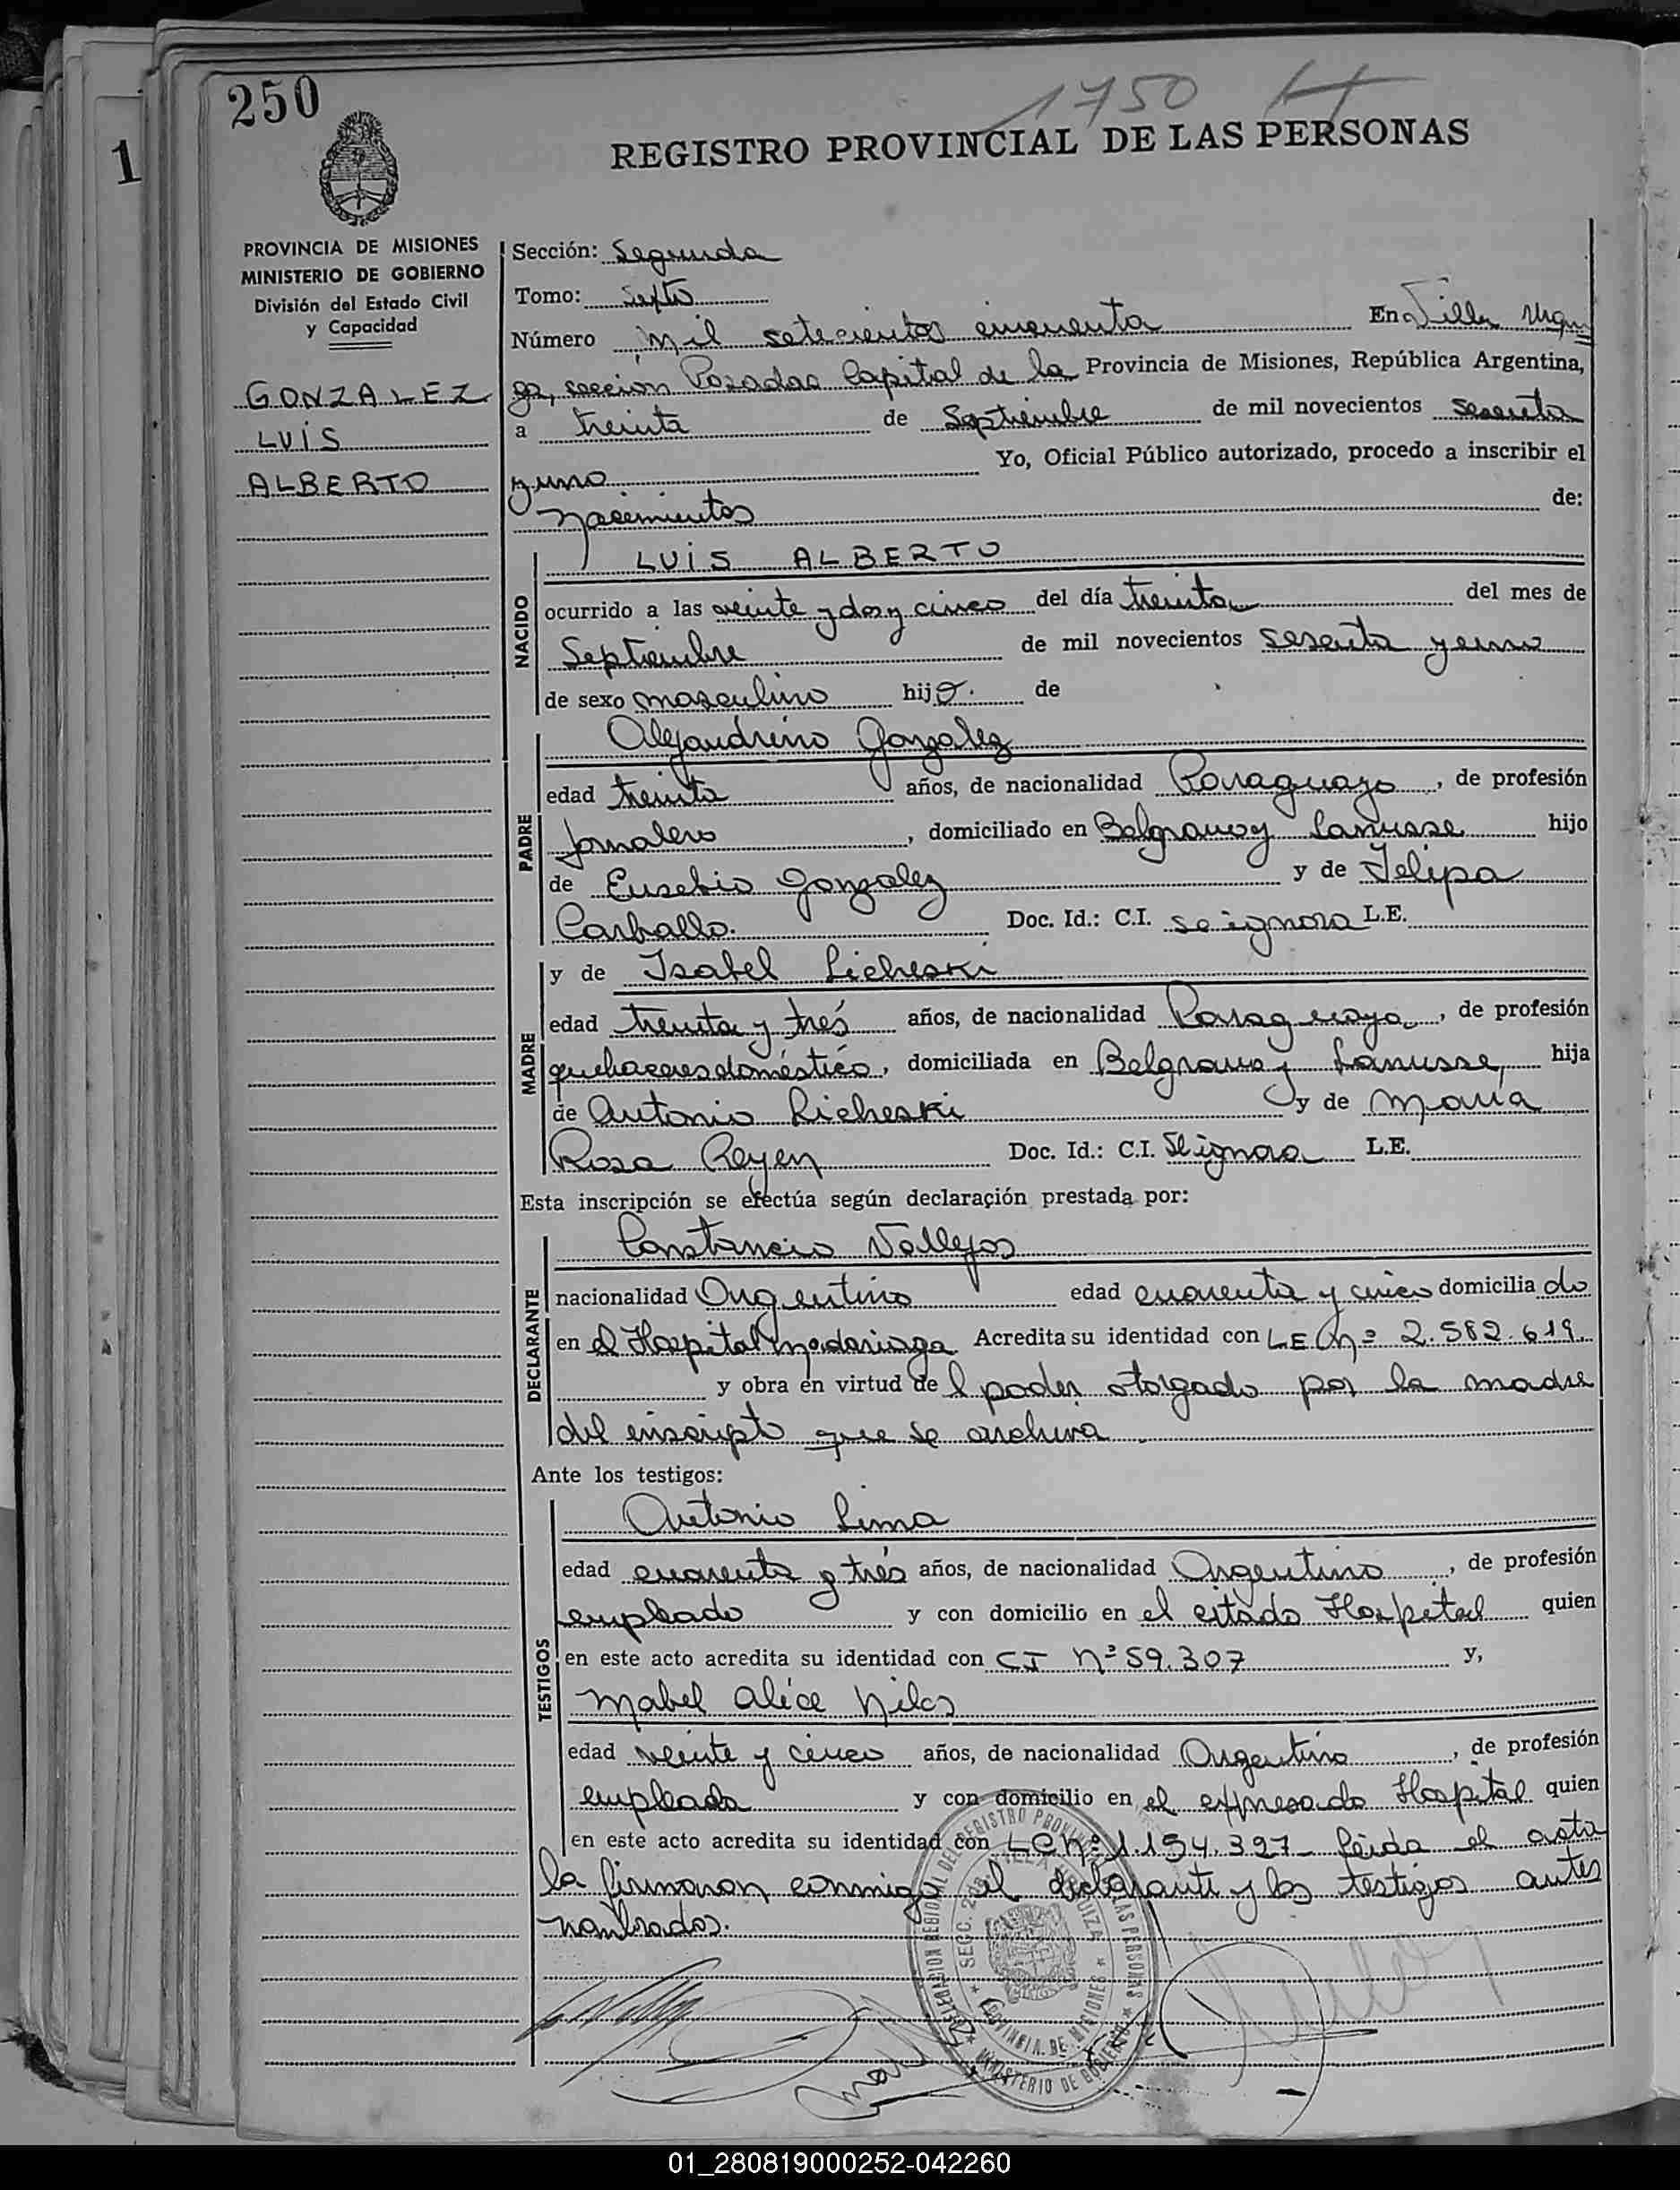 250
1750 H
1
REGISTRO PROVINCIAL DE LAS PERSONAS
PROVINCIA DE MISIONES
MINISTERIO DE GOBIERNO
División del Estado Civil
y Capacidad
GONZALEZ
LUÍS
ALBERTO
Sección: Segunda
Tomo: Septo
Número mil setecientos cincuenta En Villa Urqui
za, sección Posadas Capital de la Provincia de Misiones, República Argentina,
a treinta de Septiembre de mil novecientos sesenta
y uno Yo, Oficial Público autorizado, procedo a inscribir el
nacimientos de:
LUÍS ALBERTO
NACIDO
ocurrido a las veinte y dos y cinco del día treinta del mes de
Septiembre de mil novecientos sesenta y uno
de sexo masculino hijo. de
PADRE
Alejandrino Gonzalez
edad treinta años, de nacionalidad Paraguayo, de profesión
Jornalero, domiciliado en Belgrano y Lanusse hijo
de Eusebio Gonzalez y de Felipa
Carballo. Doc. Id.: C.I. se ignora L.E.
MADRE
y de Isabel Licheski
edad treinta y trés años, de nacionalidad Paraguaya, de profesión
quehaceres doméstico, domiciliada en Belgrano y Lanusse, hija
de Antonio Licheski y de Maria
Rosa Reyen Doc. Id.: C.I. Se ignora L.E.
Esta inscripción se efectúa según declaración prestada por:
DECLARANTE
Constancio Vallejos
nacionalidad Argentino edad cuarenta y cinco domicilia do
en el Hospital Madariaga. Acredita su identidad con LE Nº 2.582.619.
y obra en virtud de l poder otorgado por la madre
del inscripto que se archiva.
Ante los testigos:
TESTIGOS
Antonio Lima
edad cuarenta y trés años, de nacionalidad Argentino, de profesión
empleado y con domicilio en el citado Hospital quien
en este acto acredita su identidad con CI Nº 59.307 y,
Mabel Alice
edad veinte y cinco años, de nacionalidad Argentina, de profesión
empleada y con domicilio en el expresado Hospital quien
en este acto acredita su identidad con LC Nº 1.154.397 Leida el acta
la firmaron conmigo el declarante y los testigos antes
nombrados.
DELEGACION REGIONAL DEL REGISTRO PROVINCIAL DE LAS PERSONAS
SECC. 2da. VILLA URQUIZA
PROVINCIA DE MISIONES
MINISTERIO DE GOBIERNO
01_280819000252-042260